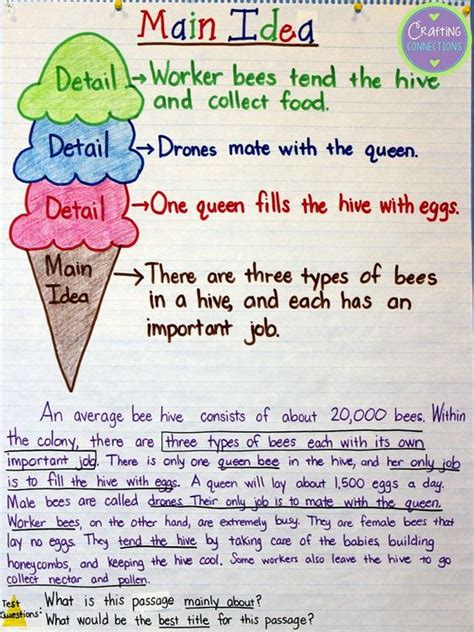 Main Idea
Crafting
CONNECTIONS
Detail → Worker bees tend the hive
and collect food.
Detail → Drones mate with the queen.
Detail → One queen fills the hive with eggs.
Main
Idea → There are three types of bees
in a hive, and each has an
important job.
An average bee hive consists of about 20,000 bees. Within
the colony, there are three types of bees each with its own
important job. There is only one queen bee in the hive, and her only job
is to fill the hive with eggs. A queen will lay about 1,500 eggs a day.
Male bees are called drones. Their only job is to mate with the queen.
Worker bees, on the other hand, are extremely busy. They are female bees that
lay no eggs. They tend the hive by taking care of the babies, building
honeycombs, and keeping the hive cool. Some workers also leave the hive to go
collect nectar and pollen.
Test
Questions: What is this passage mainly about?
What would be the best title for this passage?